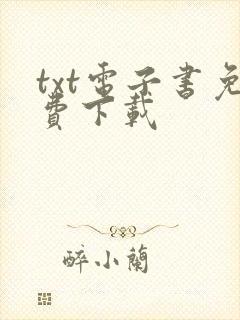 txt電子書免
費下載
醉小蘭